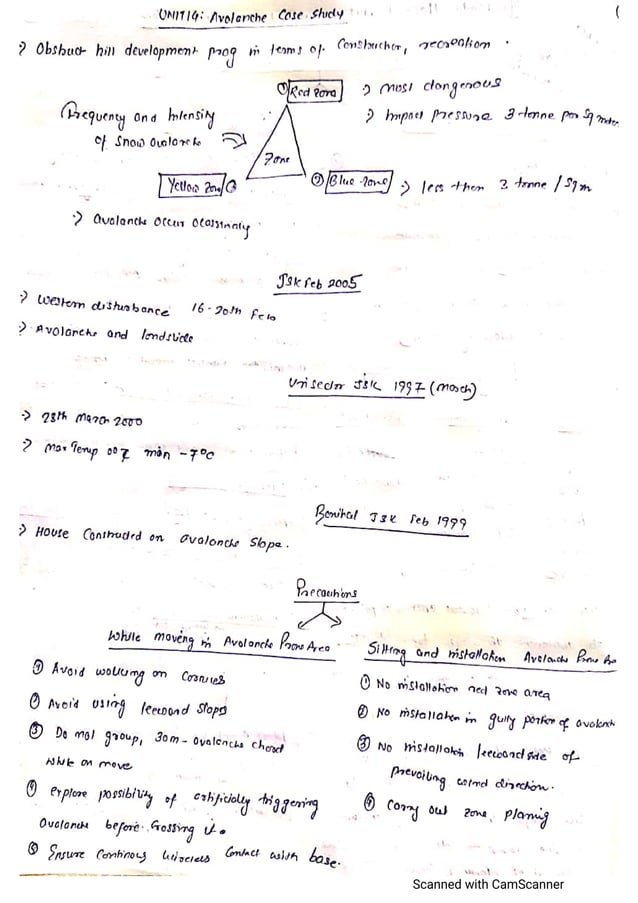 UNIT 14: Avalanche Case Study
→ Obstruct hill development prog in terms of Construction, recreation.
① Red zone
→ most dangerous
→ Impact Pressure 3 tonne per sq meter
Frequency and Intensity
of Snow avalanche
Zone
Yellow Zone ③
② Blue zone
→ less then 3 tonne / sq m
→ avalanche occur ocassinaly
J&K Feb 2005
→ Western disturbance 16-20th Feb
→ Avalanche and landslide
sector J&K 1997 (March)
→ 28th March 2000
→ Max Temp min -7°C
Banihal J&K Feb 1999
→ House Constructed on avalanche Slope.
Precautions
While moving in Avalanche Prone Area
① Avoid walking on Cornies
② Avoid using leeward Slops
③ group, 30m - avalanche chord
while on move
④ explore possibility of artificially triggering
avalanche before Crossing it.
⑤ Ensure Continous wireless Contact with base.
Sitting and installation Avalanche Prone
① No installation red zone area
② No installation in gully portion of avalanch
③ No installatoh leewardside of
prevailing wind direction.
④ Carry out zone, planing
Scanned with CamScanner